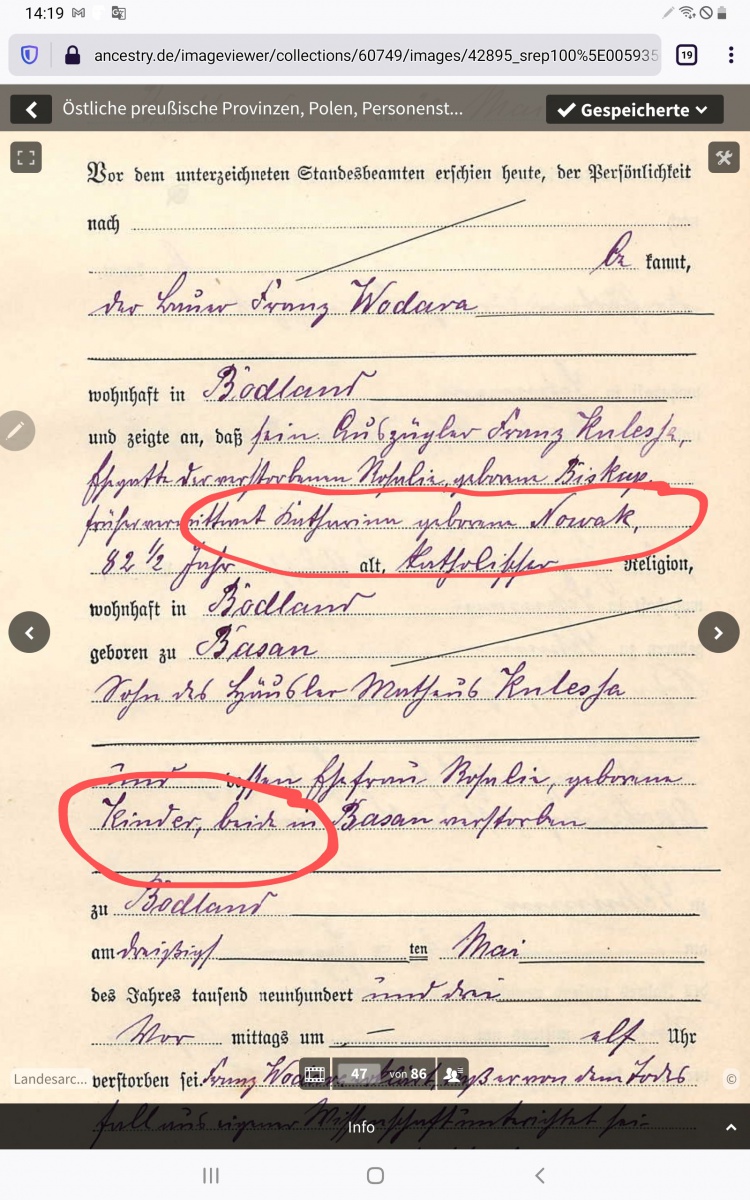 14:19
ancestry.de/imageviewer/collections/60749/images/42895_srep100%5E005935
19
Östliche preußische Provinzen, Polen, Personenst...
Gespeicherte
Vor dem unterzeichneten Standesbeamten erschien heute, der Persönlichkeit
nach
be kannt,
der Bauer Franz Wodara
wohnhaft in Bodland
und zeigte an, daß sein Auszügler Franz Kulessa,
Ehegatte der verstorbenen Rosalie, geborene Biskup,
früher verwittwet Katharina geborene Nowak,
82 1/2 Jahr alt, katholischer Religion,
wohnhaft in Bodland
geboren zu Basan
Sohn des Häusler Matheus Kulessa
und dessen Ehefrau Rosalie, geborene
Kinder, beide in Basan verstorben
zu Bodland
am dreißigsten Mai
des Jahres tausend neunhundert und drei
Vor mittags um elf Uhr
verstorben sei. Franz daß er von dem Todes
fall aus eigener Wissenschaft unterrichtet sei.
47 von 86
Landesarc...
©
Info